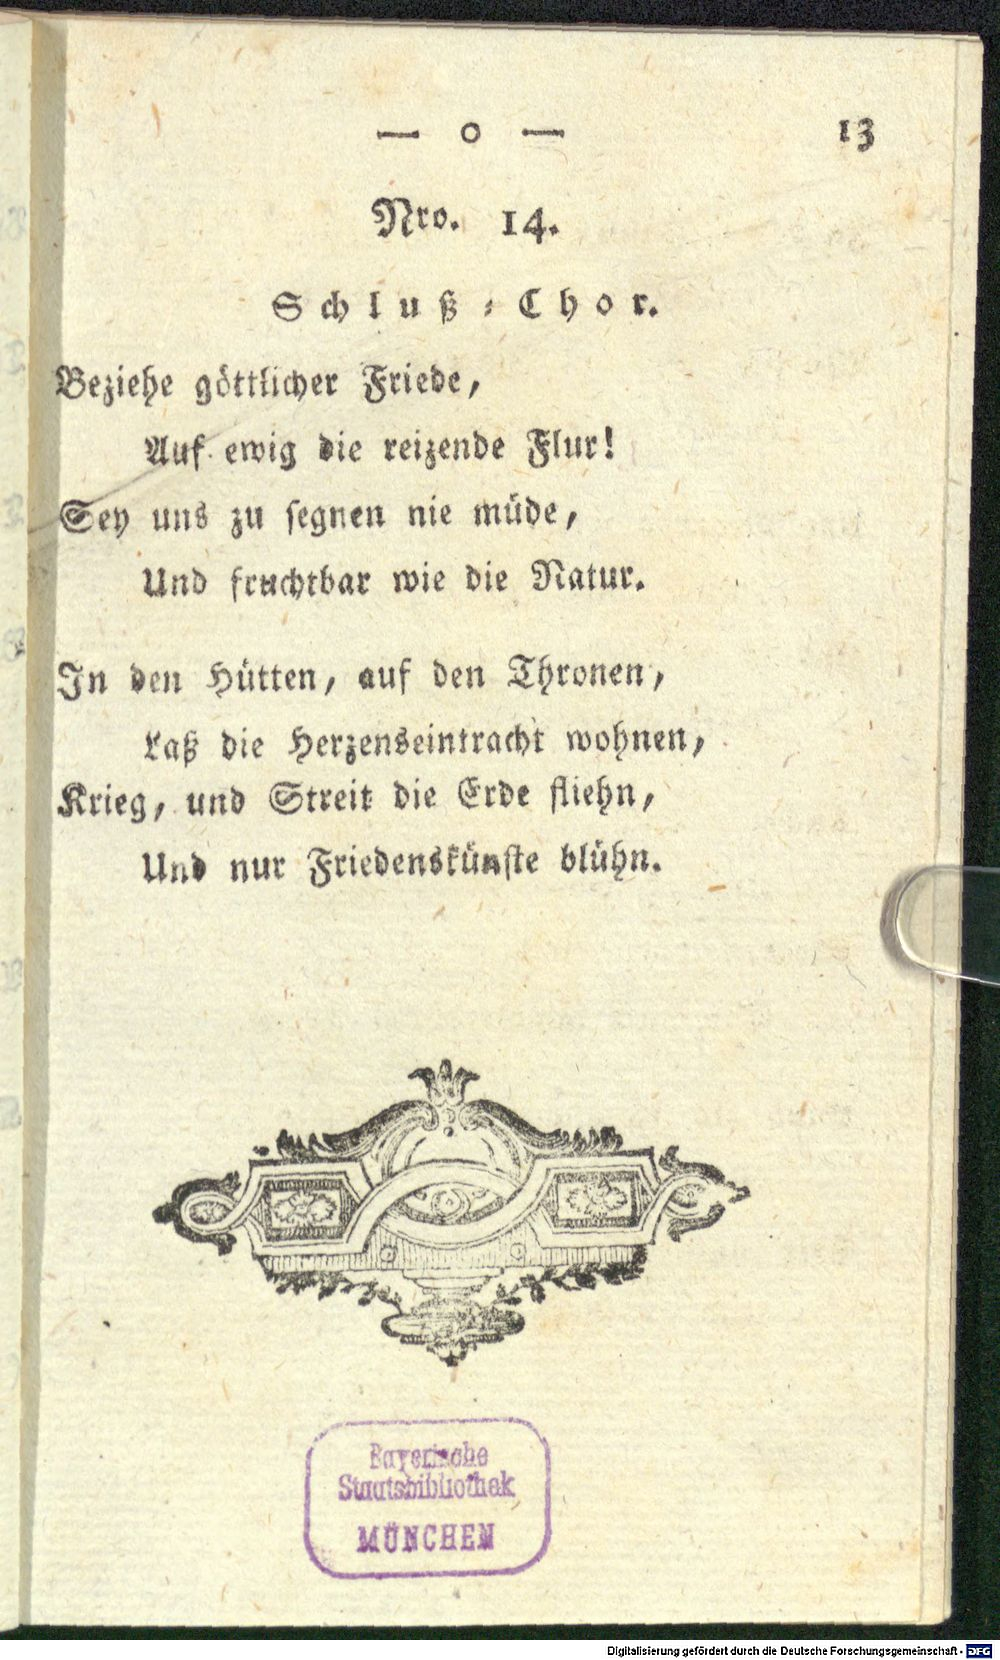 — o — 13
Nro. 14.
Schluß-Chor.
Beziehe göttlicher Friede,
Auf ewig die reizende Flur!
Sey uns zu segnen nie müde,
Und fruchtbar wie die Natur.
In den Hütten, auf den Thronen,
Laß die Herzenseintracht wohnen,
Krieg, und Streit die Erde fliehn,
Und nur Friedenskünste blühn.
Bayerische
Staatsbibliothek
MÜNCHEN
Digitalisierung gefördert durch die Deutsche Forschungsgemeinschaft - DFG